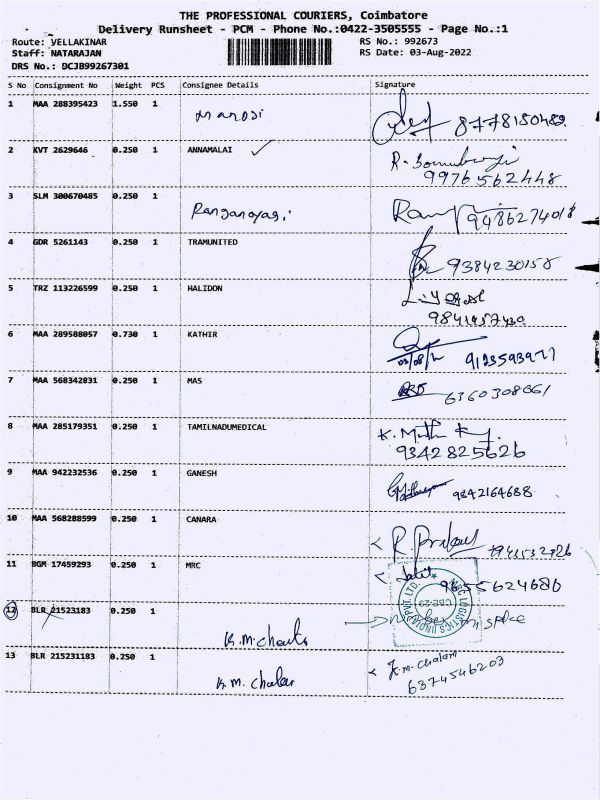 THE PROFESSIONAL COURIERS, Coimbatore
Delivery Runsheet - PCM - Phone No.:0422-3505555 - Page No.:1
Route: VELLAKINAR RS No.: 992673
Staff: NATARAJAN RS Date: 03-Aug-2022
DRS No.: DCJB99267301
S No Consignment No Weight PCS Consignee Details Signature
1 MAA 288395423 1.550 1 8778150482
2 KVT 2629646 0.250 1 ANNAMALAI
9976562448
3 SLM 300670485 0.250 1 Ranganayagi 9486274018
4 GDR 5261143 0.250 1 TRAMUNITED 9384230158
5 TRZ 113226599 0.250 1 HALIDON
6 MAA 289588057 0.730 1 KATHIR
7 MAA 568342831 0.250 1 MAS 6360308061
8 MAA 285179351 0.250 1 TAMILNADUMEDICAL
9342825626
9 MAA 942232536 0.250 1 GANESH 9842164688
10 MAA 568288599 0.250 1 CANARA
11 BGM 17459293 0.250 1 MRC 9655624680
12 BLR 21523183 0.250 1
13 BLR 215231183 0.250 1 K.M. Chalam K.M. Chalam
6374546203